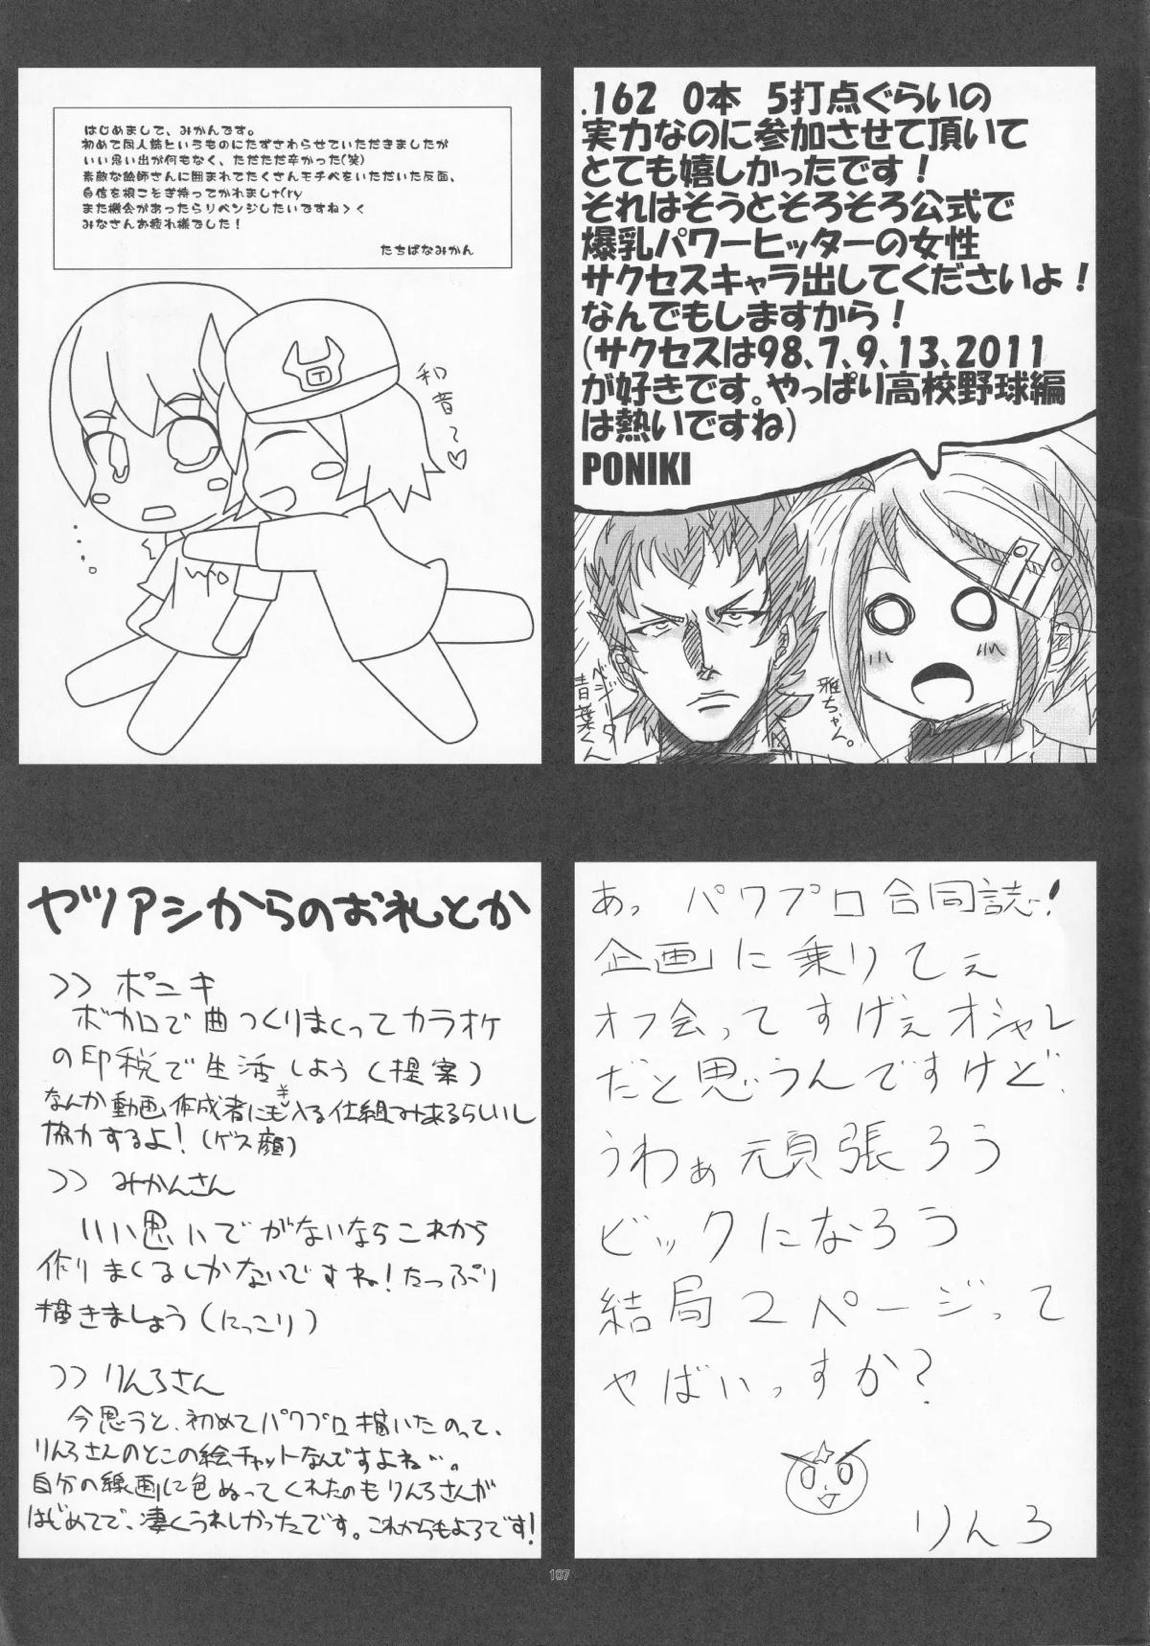 はじめまして、みかんです。
初めて同人誌というものにたずさわらせていただきましたが
いい思い出が何もなく、ただただ辛かった(笑)
素敵な絵師さんに囲まれてたくさんモチベをいただいた反面、
自信を根こそぎ持ってかれましt(ry
また機会があったらリベンジしたいですね＞＜
みなさんお疲れ様でした！
たちばなみかん
和音～♡
.162 0本 5打点ぐらいの
実力なのに参加させて頂いて
とても嬉しかったです！
それはそうとそろそろ公式で
爆乳パワーヒッターの女性
サクセスキャラ出してくださいよ！
なんでもしますから！
(サクセスは98、7、9、13、2011
が好きです。やっぱり高校野球編
は熱いですね)
PONIKI
ベジータ
青葉くん
雅ちゃん。
ヤツアシからのお礼とか
>> ポニキ
ボカロで曲つくりまくってカラオケ
の印税で生活しよう(提案)
なんか動画作成者にも入る仕組み来るらしいし
協力するよ！(ゲス顔)
>> みかんさん
いい思いでがないならこれから
作りまくるしかないですね！たっぷり
描きましょう(にっこり)
>> りんろさん
今思うと、初めてパワプロ描いたのって、
りんろさんのとこの絵チャットなんですよね…。
自分の線画に色ぬってくれたのもりんろさんが
はじめてで、凄くうれしかったです。これからもよろです！
あっ パワプロ合同誌！
企画に乗りてぇ
オフ会ってすげぇオシャレ
だと思うんですけど、
うわぁ頑張ろう
ビックになろう
結局2ページって
やばいっすか？
りんろ
107